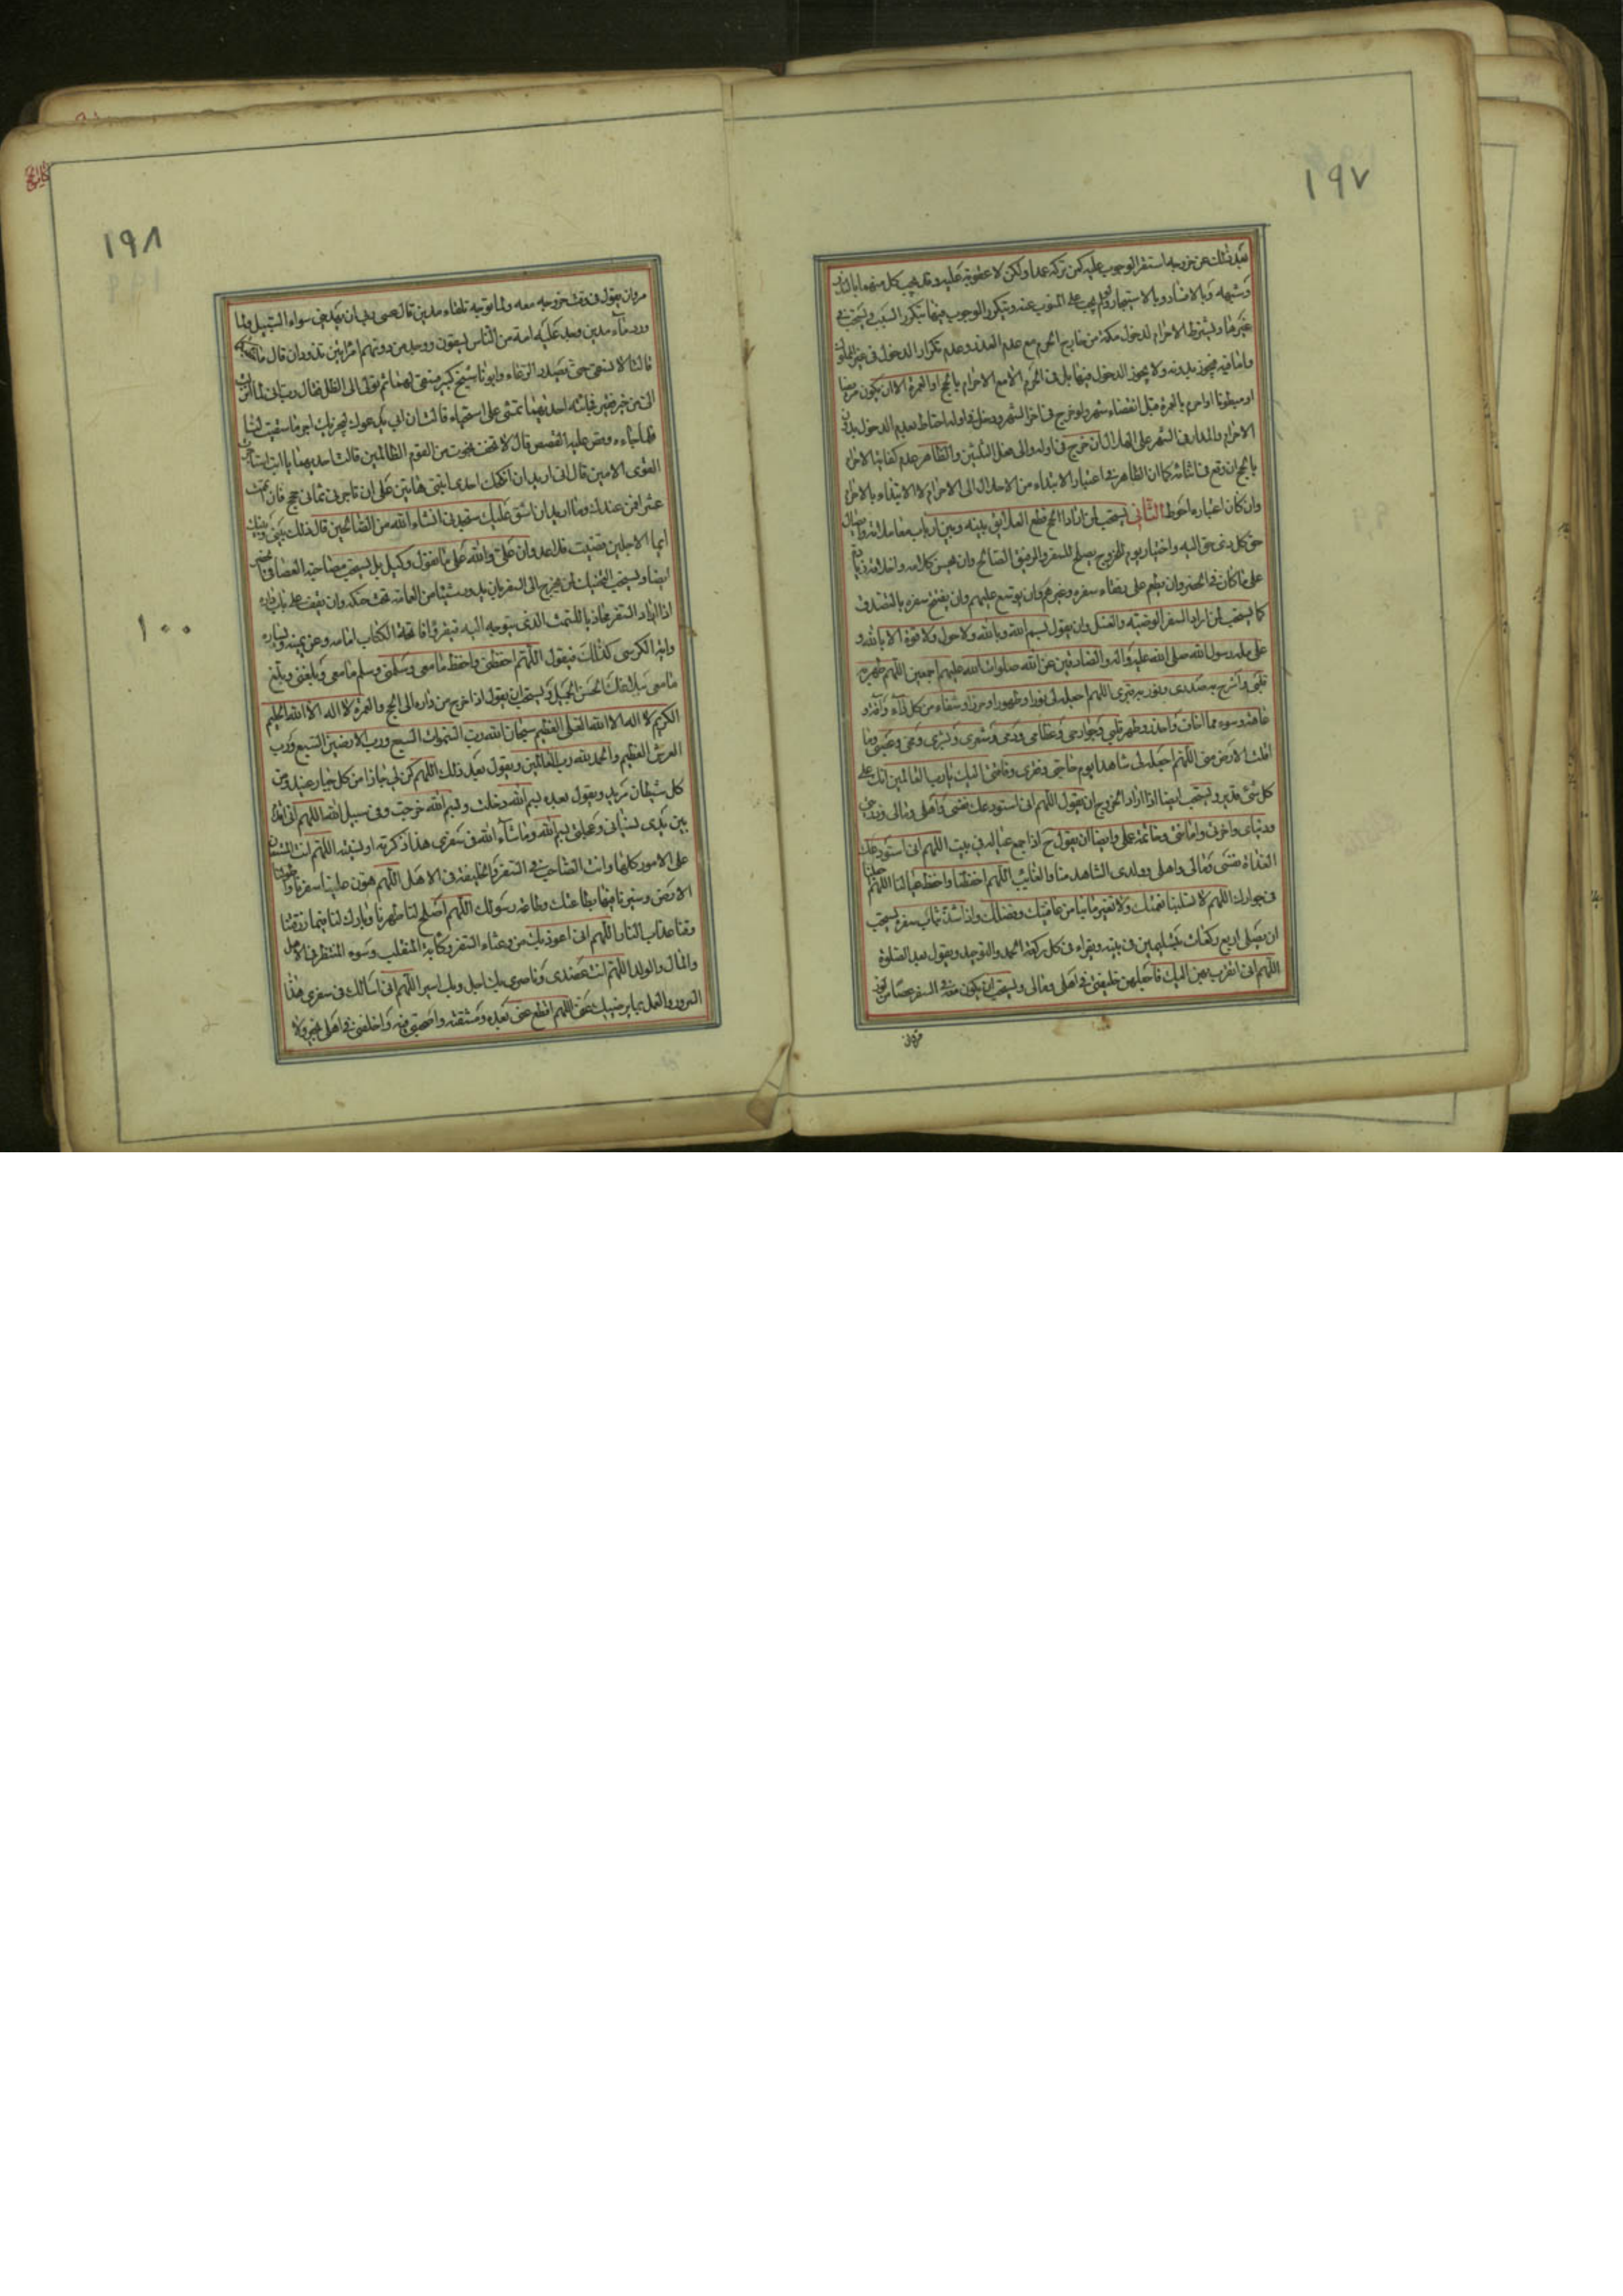 ١٩٧
بعد ذلك عن خروجه استقر الوجوب عليه كمن تركه عمدا ولكن لا عقوبة عليه وقد يجب كل منهما بالنذر
وشبهه وبالافساد وبالاستيجار ولم يجب على المنوب عنه ويتكرر الوجوب فيها بتكرر السبب ويستحب في
غيرها ويشترط الاحرام لدخول مكة من خارج الحرم مع عدم العذر وعدم تكرار الدخول في غير المملوك
واما فيه فيجوز بدونه ولا يجوز الدخول فيها بل في الحرم الا مع الاحرام بالحج او العمرة الا ان يكون مريضا
او مبطونا او احرم بالعمرة قبل انقضاء شهر ولو خرج في اخر الشهر ودخل في اوله احتاط بعدم الدخول بدون
الاحرام والمدار في الشهر على الهلال ان خرج في اوله والى مثل الثلثين والظاهر عدم كفاية الاحرام
بالحج ان وقع في اثنائه كما ان الظاهر في اعتبار الابتداء من الاحلال الى الاحرام لا الابتداء بالاحرام
وان كان اعتباره احوط الثاني يستحب لمن اراد الحج قطع العلائق بينه وبين ارباب معاملاته وايصال
حق كل ذي حق اليه واختيار يوم للخروج يصلح للسفر والرفيق الصالح وان يحسن كلامه واخلاقه زيادة
على ما كان في الحضر وان يطعم على رفقاء سفره وغيرهم وان يوسع عليهم وان يفتتح سفره بالتصدق
كما يستحب لمن اراد السفر الوصية والغسل وان يقول بسم الله وبالله ولا حول ولا قوة الا بالله و
على ملة رسول الله صلى الله عليه وآله والصادقين عن الله صلوات الله عليهم اجمعين اللهم طهر به
قلبي واشرح به صدري ونور به قبري اللهم اجعله لي نورا وطهورا وحرزا وشفاء من كل داء وآفة و
عاهة وسوء مما اخاف واحذر وطهر قلبي وجوارحي وعظامي ودمي وشعري وبشري ومخي وعصبي وما
اقلت الارض مني اللهم اجعله لي شاهدا يوم حاجتي وفقري وفاقتي اليك يا رب العالمين انك على
كل شئ قدير ويستحب ايضا اذا اراد الخروج ان يقول اللهم اني استودعك نفسي واهلي ومالي وذريتي
ودنياي واخرتي وامانتي وخاتمة عملي وايضا ان يقول ح اذا جمع عياله في بيت اللهم اني استودعك
الغداة نفسي ومالي واهلي وولدي الشاهد منا والغايب اللهم احفظنا واحفظ عيالنا اللهم اجعلنا
في جوارك اللهم لا تسلبنا نعمتك ولا تغير ما بنا من عافيتك وفضلك واذا شد ثياب سفره يستحب
ان يصلي اربع ركعات بتسليمين في بيته ويقراء في كل ركعة الحمد والتوحيد ويقول بعد الصلوة
اللهم اني اتقرب بهن اليك فاجعلهن خليفتي في اهلي ومالي ويستحب ان يكون معه في السفر عصا من لوز
مر وان
١٩٨
مر وان يقول في وقت خروجه معه ولما توجه تلقاء مدين قال عسى ربي ان يهديني سواء السبيل ولما
ورد ماء مدين وجد عليه امة من الناس يسقون ووجد من دونهم امراتين تذودان قال ما خطبكما
قالتا لا نسقي حتى يصدر الرعاء وابونا شيخ كبير فسقى لهما ثم تولى الى الظل فقال رب اني لما انزلت
الي من خير فقير فجائته احديهما تمشي على استحياء قالت ان ابي يدعوك ليجزيك اجر ما سقيت لنا
فلما جاءه وقص عليه القصص قال لا تخف نجوت من القوم الظالمين قالت احديهما يا ابت استاجره
القوي الامين قال اني اريد ان انكحك احدى ابنتي هاتين على ان تاجرني ثماني حجج فان اتممت
عشرا فمن عندك وما اريد ان اشق عليك ستجدني انشاء الله من الصالحين قال ذلك بيني وبينك
ايما الاجلين قضيت فلا عدوان علي والله على ما نقول وكيل بل يستحب مصاحبة العصا في الحضر
ايضا ويستحب التحنك لمن يخرج الى السفر بان يدير شيئا من العمامة تحت حنكه وان يقف على باب داره
اذا اراد السفر محاذيا للسمت الذي يتوجه اليه فيقرء فاتحة الكتاب امامه وعن يمينه ويساره
واية الكرسي كذلك فيقول اللهم احفظني واحفظ ما معي وسلمني وسلم ما معي وبلغني وبلغ
ما معي ببلاغك الحسن الجميل ويستحب ان يقول اذا خرج من داره الى الحج والعمرة لا اله الا الله الحليم
الكريم لا اله الا الله العلي العظيم سبحان الله رب السموات السبع ورب الارضين السبع ورب
العرش العظيم والحمد لله رب العالمين ويقول بعد ذلك اللهم كن لي جارا من كل جبار عنيد ومن
كل شيطان مريد ويقول بعده بسم الله دخلت وبسم الله خرجت وفي سبيل الله اللهم اني اقدم
بين يدي نسياني وعجلتي بسم الله وما شاء الله في سفري هذا ذكرته او نسيته اللهم انت المستعان
على الامور كلها وانت الصاحب في السفر والخليفة في الاهل اللهم هون علينا سفرنا واطو لنا
الارض وسيرنا فيها بطاعتك وطاعة رسولك اللهم اصلح لنا ظهرنا وبارك لنا فيما رزقتنا
وقنا عذاب النار اللهم اني اعوذ بك من وعثاء السفر وكآبة المنقلب وسوء المنظر في الاهل
والمال والولد اللهم انت عضدي وناصري بك احل وبك اسير اللهم اني اسالك في سفري هذا
السرور والعمل بما يرضيك عني اللهم اقطع عني بعده ومشقته واصحبني فيه واخلفني في اهلي بخير ولا
١٠٠